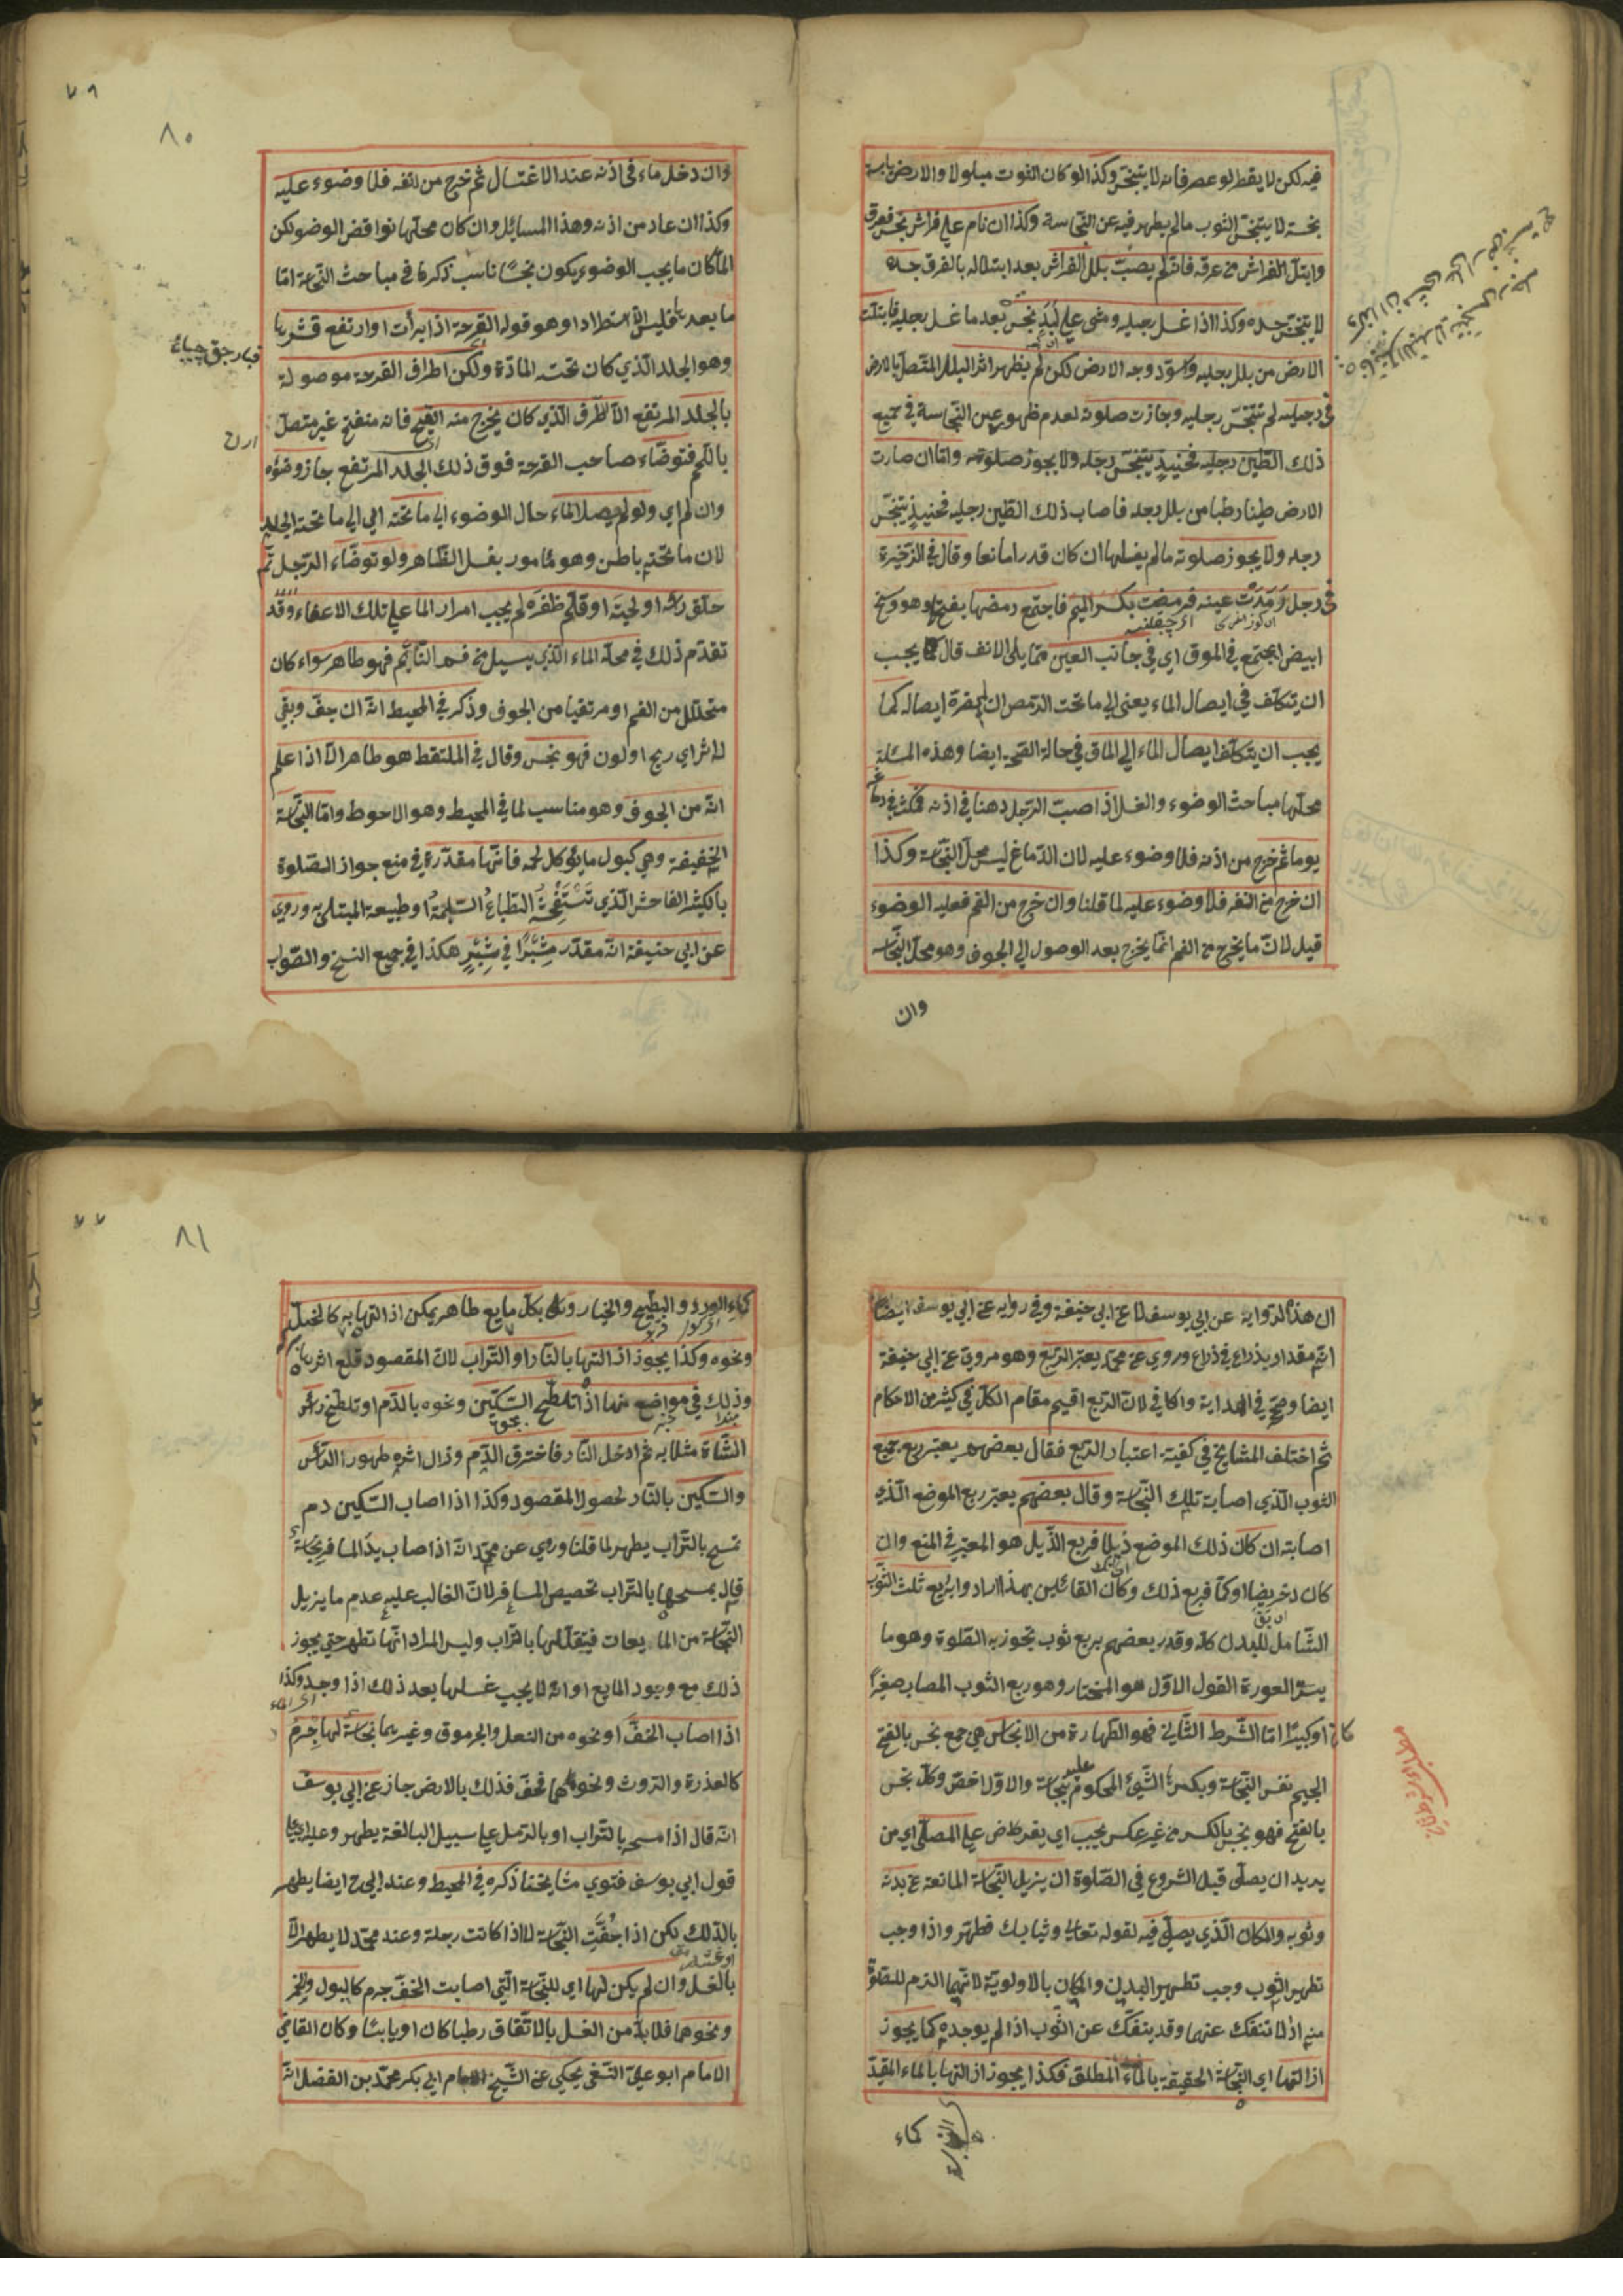 فيه لكن لا يقطر لو عصر فانه لا يتنجس وكذا لو كان الثوب مبلولا والارض يابسة
نجسة لا يتنجس الثوب ما لم يظهر فيه عين النجاسة وكذا ان نام على فراش نجس فعرق
وابتل الفراش من عرقه فانه لم يصب بلل الفراش بعد ابتلاله بالعرق جسده
لا يتنجس جسده وكذا اذا غسل رجليه ومشى على لبد نجس بعد ما غسل رجليه فابتلت
الارض من بلل رجليه واسود وجه الارض لكن لم يظهر اثر البلل المتصل بالارض
في رجليه لم تتنجس رجليه وجازت صلوته لعدم ظهور عين النجاسة في جميع
ذلك الطين رجليه فحينئذ يتنجس رجله ولا يجوز صلوته واما ان صارت
الارض طينا رطبا من بلل رجله فاصاب ذلك الطين رجليه فحينئذ يتنجس
رجله ولا يجوز صلوته ما لم يغسلها ان كان قدرا مانعا وقال في الذخيرة
في رجل رمدت عينه فرمضت بكسر الميم فاجتمع رمضها بفتحها وهو وسخ
ابيض يجتمع في الموق اي في جانب العين مما يلي الانف قال يجب
ان يتكلف في ايصال الماء يعنى الى ما تحت الرمص ان لم يضره ايصاله كما
يجب ان يتكلف ايصال الماء الى الماق في حالة الصحة ايضا وهذه المسئلة
محلها مباحث الوضوء والغسل اذا صب الرجل دهنا في اذنه فمكث في دماغه
يوما ثم خرج من اذنه فلا وضوء عليه لان الدماغ ليس محل النجاسة وكذا
ان خرج من انفه فلا وضوء عليه لما قلنا وان خرج من الفم فعليه الوضوء
قيل لان ما يخرج من الفم انما يخرج بعد الوصول الى الجوف وهو محل النجاسة
وان
٨٠
وان دخل ماء في اذنه عند الاغتسال ثم خرج من انفه فلا وضوء عليه
وكذا ان عاد من اذنه وهذا المسائل وان كان محلها نواقض الوضو لكن
لما كان ما يجب الوضوء يكون نجسا ناسب ذكرها في مباحث النجاسة اما
ما بعدها فليس الا استطرادا وهو قوله القرحة اذا برأت او ارتفع قشرها
وهو الجلد الذي كان تحته المادة ولكن اطراف القرحة موصولة
بالجلد المرتفع الا الطرف الذي كان يخرج منه القيح فانه منفتح غير متصل
باللحم فتوضاء صاحب القرحة فوق ذلك الجلد المرتفع جاز وضوءه
وان لم اي ولو لم يصل الماء حال الوضوء الى ما تحته اي الى ما تحت الجلد
لان ما تحته باطن وهو مأمور بغسل الظاهر ولو توضاء الرجل ثم
حلق رأسه او لحيته او قلم ظفره لم يجب امرار الما على تلك الاعضاء وقد
تقدم ذلك في محله الماء الذي يسيل من فم النائم فهو طاهر سواء كان
متحللا من الفم او مرتقيا من الجوف وذكر في المحيط انه ان جف وبقي
له اثر اي ريح او لون فهو نجس وقال في الملتقط هو طاهر الا اذا علم
انه من الجوف وهو مناسب لما في المحيط وهو الاحوط واما النجاسة
الخفيفة وهي كبول ما يؤكل لحمه فانها مقدرة في منع جواز الصلوة
بالكثير الفاحش الذي تستفحشه الطباع السليمة او طبيعة المبتلى به وروي
عن ابي حنيفة انه مقدر شبرا في شبر هكذا في جميع النسخ والصواب
ان هذا لرواية عن ابي يوسف لا عن ابي حنيفة وفي رواية عن ابي يوسف ايضا
انه مقدار بذراع في ذراع وروي عن محمد يعتبر الربع وهو مروي عن ابي حنيفة
ايضا وصحح في الهداية والكافي لان الربع اقيم مقام الكل في كثير من الاحكام
ثم اختلف المشايخ في كيفية اعتبار الربع فقال بعضهم يعتبر ربع جميع
الثوب الذي اصابته تلك النجاسة وقال بعضهم يعتبر ربع الموضع الذي
اصابته ان كان ذلك الموضع ذيلا فربع الذيل هو المعتبر في المنع وان
كان دخريضا او كما فربع ذلك وكان القائلين بهذا ارادوا به ربع ثلث الثوب
الشامل للبدن كله وقدر بعضهم بربع ثوب تجوز به الصلوة وهو ما
يستر العورة القول الاول هو المختار وهو ربع الثوب المصاب صغيرا
كان او كبيرا اما الشرط الثاني فهو الطهارة من الانجاس هي جمع نجس بالفتح
الجيم نفس النجاسة وبكسرها الشيء المحكوم عليه بنجاسة والاول اخص وكل نجس
بالفتح فهو نجس بالكسر من غير عكس يجب اي يفرض على المصلي اي من
يريد ان يصلى قبل الشروع في الصلوة ان يزيل النجاسة المانعة عن بدنه
وثوبه والمكان الذي يصلي فيه لقوله تعالى وثيابك فطهر واذا وجب
تطهير الثوب وجب تطهير البدن والمكان بالاولوية لانهما الزم للصلوة
منه اذ لا تنفك عنهما وقد ينفك عن الثوب اذا لم يوجد كما يجوز
ازالتها اي النجاسة الحقيقة بالماء المطلق فكذا يجوز ازالتها بالماء المقيد
كماء
٨١
كماء الورد والبطيخ والخيار وكل بكل مايع طاهر يمكن ازالتها به كالخل
ونحوه وكذا يجوز ازالتها بالنار او التراب لان المقصود قلع اثرها
وذلك في مواضع منها اذا تلطخ السكين ونحوه بالدم او تلطخ رأس
الشاة مثلا به ثم ادخل النار فاحترق الدم وزال اثره طهور الرأس
والسكين بالنار لحصول المقصود وكذا اذا اصاب السكين دم
تمسح بالتراب يطهر لما قلنا وروي عن محمد انه اذا اصاب يد المسافر نجاسة
قال يمسحها بالتراب تخصيص المسافر لان الغالب عليه عدم ما يزيل
النجاسة من المايعات فيقللها بالتراب وليس المراد انها تطهر حتى يجوز
ذلك مع وجود المايع او انه لا يجب غسلها بعد ذلك اذا وجد وكذا
اذا اصاب الخف او نحوه من النعل والجرموق وغيرهما نجاسة لها جرم
كالعذرة والروث ونحوهما فجف فدلك بالارض جاز عن ابي يوسف
انه قال اذا مسحه بالتراب او بالرمل على سبيل المبالغة يطهر وعليه
قول ابي يوسف فتوى مشايخنا ذكره في المحيط وعند ابي ح ايضا يطهر
بالدلك لكن اذا جفت النجاسة لا اذا كانت رطبة وعند محمد لا يطهر الا
بالغسل وان لم يكن لها اي للنجاسة التي اصابت الخف جرم كالبول والخمر
ونحوهما فلا بد من الغسل بالاتفاق رطبا كان او يابسا وكان القاضي
الامام ابو علي النسفي يحكي عن الشيخ الامام ابي بكر محمد بن الفضل انه